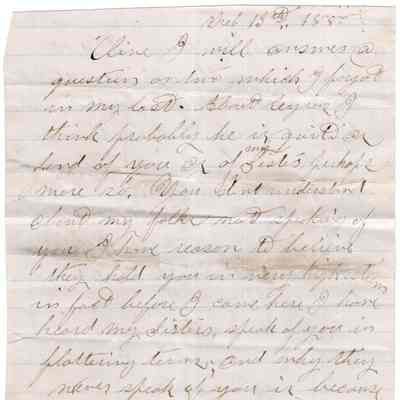 Feb 13th, 188
Cline I will answer a
question or two which I forgot
in my last. About I
think probably he is quite as
fond of you as of my Sister, perhaps
more so. You dont understand
about my folks not speaking of
you I have reason to believe
they hold you in very high esteem
in fact before I came here I have
heard my Sisters speak of you in
flattering terms, and why they
never speak of you is because